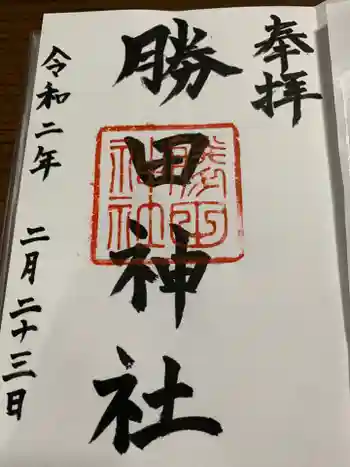 奉拝
勝田神社
勝田
神社
令和二年 二月二十三日